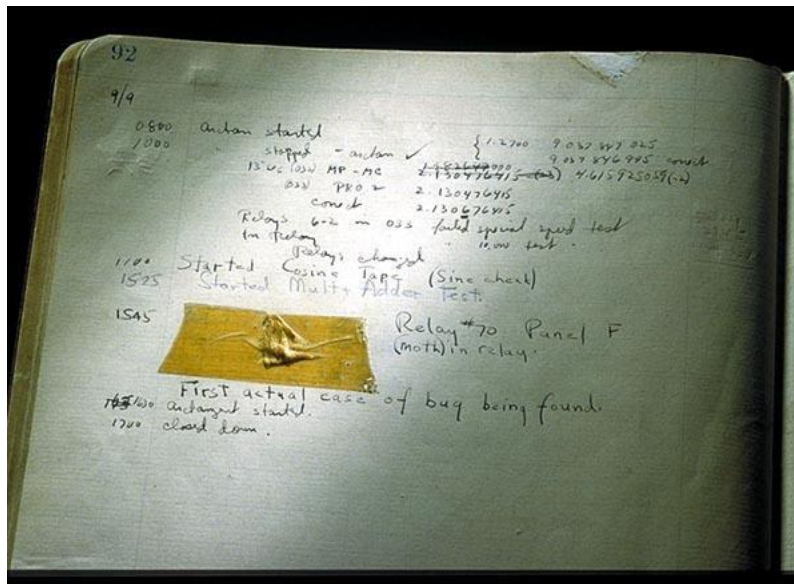 92
9/9
0800 antan started
1000 " stopped - antan ✓ { 1.2700 9.037 847 025
9.037 846 995 conect
13"uc (032) MP - MC 2.130476415 4.615925059(-2)
(033) PRO 2 2.130476415
conect 2.130676415
Relays 6-2 in 033 failed special speed test
in Relay " 10,000 test .
Relays changed
1100 Started Cosine Tape (Sine check)
1525 Started Mult + Adder Test.
1545 Relay #70 Panel F
(moth) in relay.
First actual case of bug being found.
1630 antangent started.
1700 closed down.